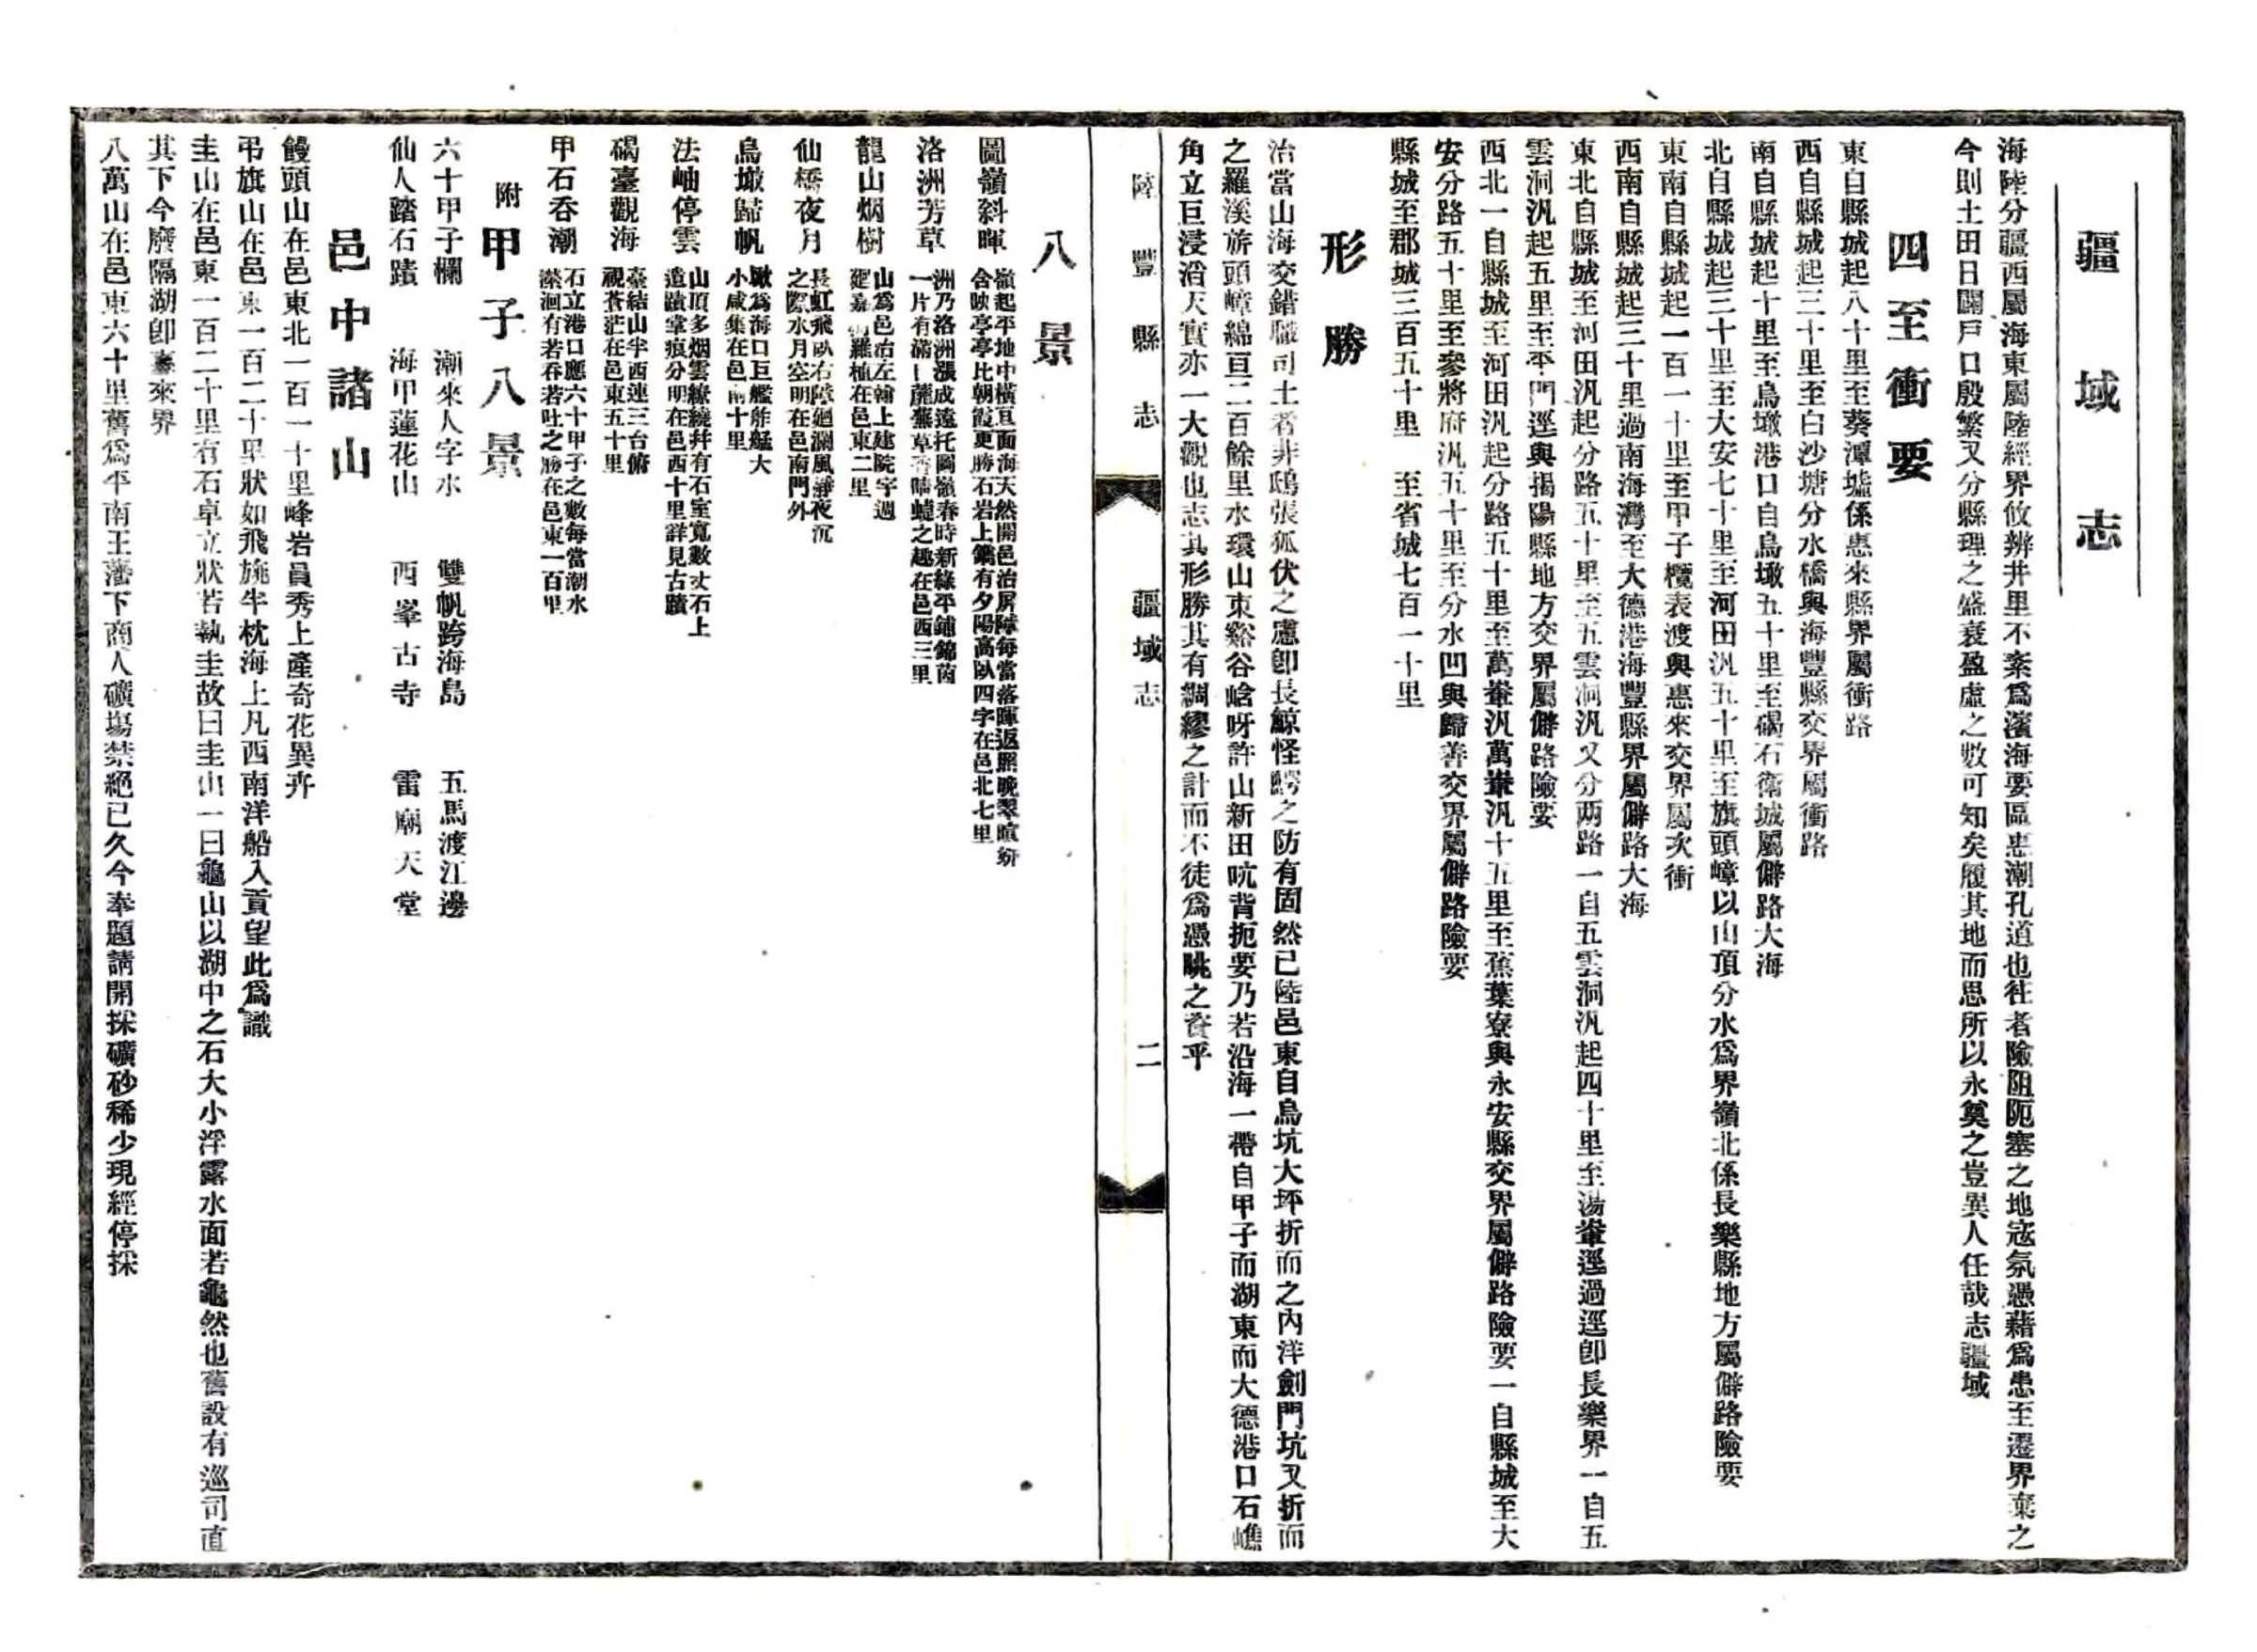 疆域志
海陸分疆西屬海東屬陸經界攸辨井里不紊爲濱海要區惠潮孔道也往者險阻阨塞之地寇氛憑藉爲患至遷界棄之
今則土田日闢戶口殷繁又分縣理之盛衰盈虛之數可知矣履其地而思所以永奠之豈異人任哉志疆域
四至衝要
東自縣城起八十里至葵潭墟係惠來縣界屬衝路
西自縣城起三十里至白沙塘分水橋與海豐縣交界屬衝路
南自縣城起十里至烏墩港口自烏墩五十里至碣石衛城屬僻路大海
北自縣城起三十里至大安七十里至河田汛五十里至旗頭嶂以山頂分水爲界嶺北係長樂縣地方屬僻路險要
東南自縣城起一百一十里至甲子欖表渡與惠來交界屬次衝
西南自縣城起三十里過南海灣至大德港海豐縣界屬僻路大海
東北自縣城至河田汛起分路五十里至五雲洞汛又分两路一自五雲洞汛起四十里至湯輋逕過逕卽長樂界一自五
雲洞汛起五里至平門逕與揭陽縣地方交界屬僻路險要
西北一自縣城至河田汛起分路五十里至萬輋汛萬輋汛十五里至蕉葉寮與永安縣交界屬僻路險要一自縣城至大
安分路五十里至參將府汛五十里至分水凹與歸善交界屬僻路險要
縣城至郡城三百五十里　至省城七百一十里
形勝
治當山海交錯職司土者非鴟張狐伏之慮卽長鯨怪鱷之防有固然已陸邑東自烏坑大坪折而之內洋劍門坑又折而
之羅溪旂頭嶂綿亘二百餘里水環山束谿谷㟏呀許山新田吭背扼要乃若沿海一帶自甲子而湖東而大德港口石㠐
角立巨浸滔天實亦一大觀也志其形勝其有綢繆之計而不徒爲憑眺之資乎
陸豐縣志　疆域志　二
八景
圖嶺斜暉　嶺起平地中橫亘面海天然開邑治屏障每當落暉返照晚翠繽紛
含映亭亭比朝霞更勝石岩上鐫有夕陽高臥四字在邑北七里
洛洲芳草　洲乃洛洲漲成遠托圖嶺春時新綠平鋪錦茵
一片有滿地蘼蕪草香晴蝶之趣在邑西三里
龍山烟樹　山爲邑治左翰上建院宇週
廻嘉樹羅植在邑東二里
仙橋夜月　長虹飛臥右障廻瀾風靜夜沉
之際水月空明在邑南門外
烏墩歸帆　墩爲海口巨艦舴艋大
小咸集在邑南十里
法岫停雲　山頂多烟雲繚繞幷有石室寬數丈石上
遺蹟掌痕分明在邑西十里詳見古蹟
碣臺觀海　臺結山半西連三台俯
視蒼茫在邑東五十里
甲石吞潮　石立港口應六十甲子之數每當潮水
瀠洄有若吞若吐之勝在邑東一百里
附甲子八景
六十甲子欄　潮來人字水　雙帆跨海島　五馬渡江邊
仙人踏石蹟　海甲蓮花山　西峯古寺　雷廟天堂
邑中諸山
饅頭山在邑東北一百一十里峰岩員秀上產奇花異卉
弔旗山在邑東一百二十里狀如飛旐半枕海上凡西南洋船入貢望此爲識
圭山在邑東一百二十里有石卓立狀若執圭故曰圭山一曰龜山以湖中之石大小浮露水面若龜然也舊設有巡司直
其下今廨隔湖卽惠來界
八萬山在邑東六十里舊爲平南王藩下商人礦塲禁絕已久今奉題請開採礦砂稀少現經停採